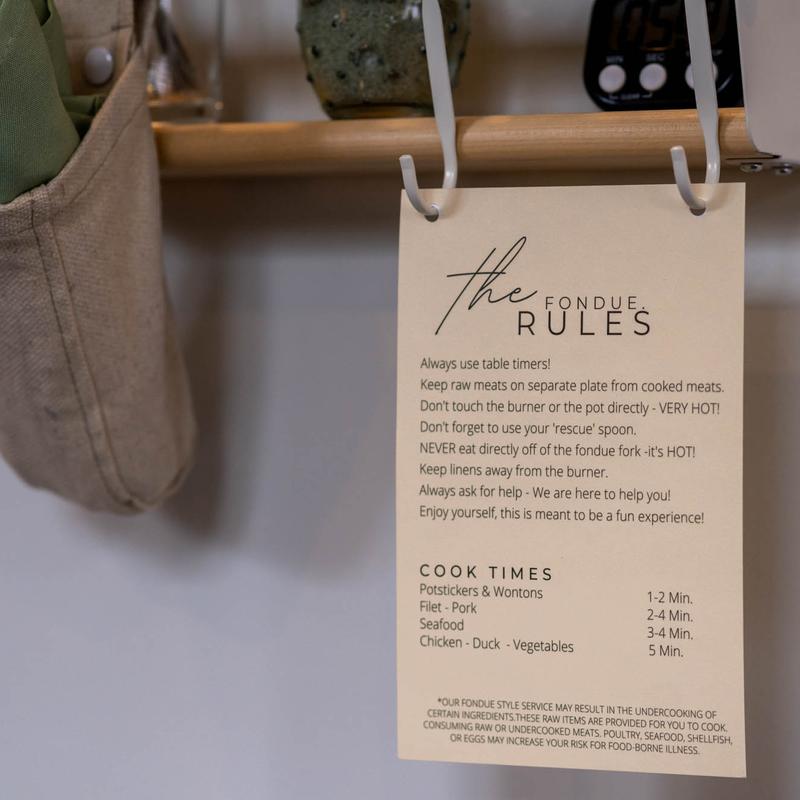 MIN SEC
CLEAR
the FONDUE.
RULES
Always use table timers!
Keep raw meats on separate plate from cooked meats.
Don't touch the burner or the pot directly - VERY HOT!
Don't forget to use your 'rescue' spoon.
NEVER eat directly off of the fondue fork -it's HOT!
Keep linens away from the burner.
Always ask for help - We are here to help you!
Enjoy yourself, this is meant to be a fun experience!
COOK TIMES
Potstickers & Wontons 1-2 Min.
Filet - Pork 2-4 Min.
Seafood 3-4 Min.
Chicken - Duck - Vegetables 5 Min.
*OUR FONDUE STYLE SERVICE MAY RESULT IN THE UNDERCOOKING OF
CERTAIN INGREDIENTS.THESE RAW ITEMS ARE PROVIDED FOR YOU TO COOK.
CONSUMING RAW OR UNDERCOOKED MEATS. POULTRY, SEAFOOD, SHELLFISH,
OR EGGS MAY INCREASE YOUR RISK FOR FOOD-BORNE ILLNESS.